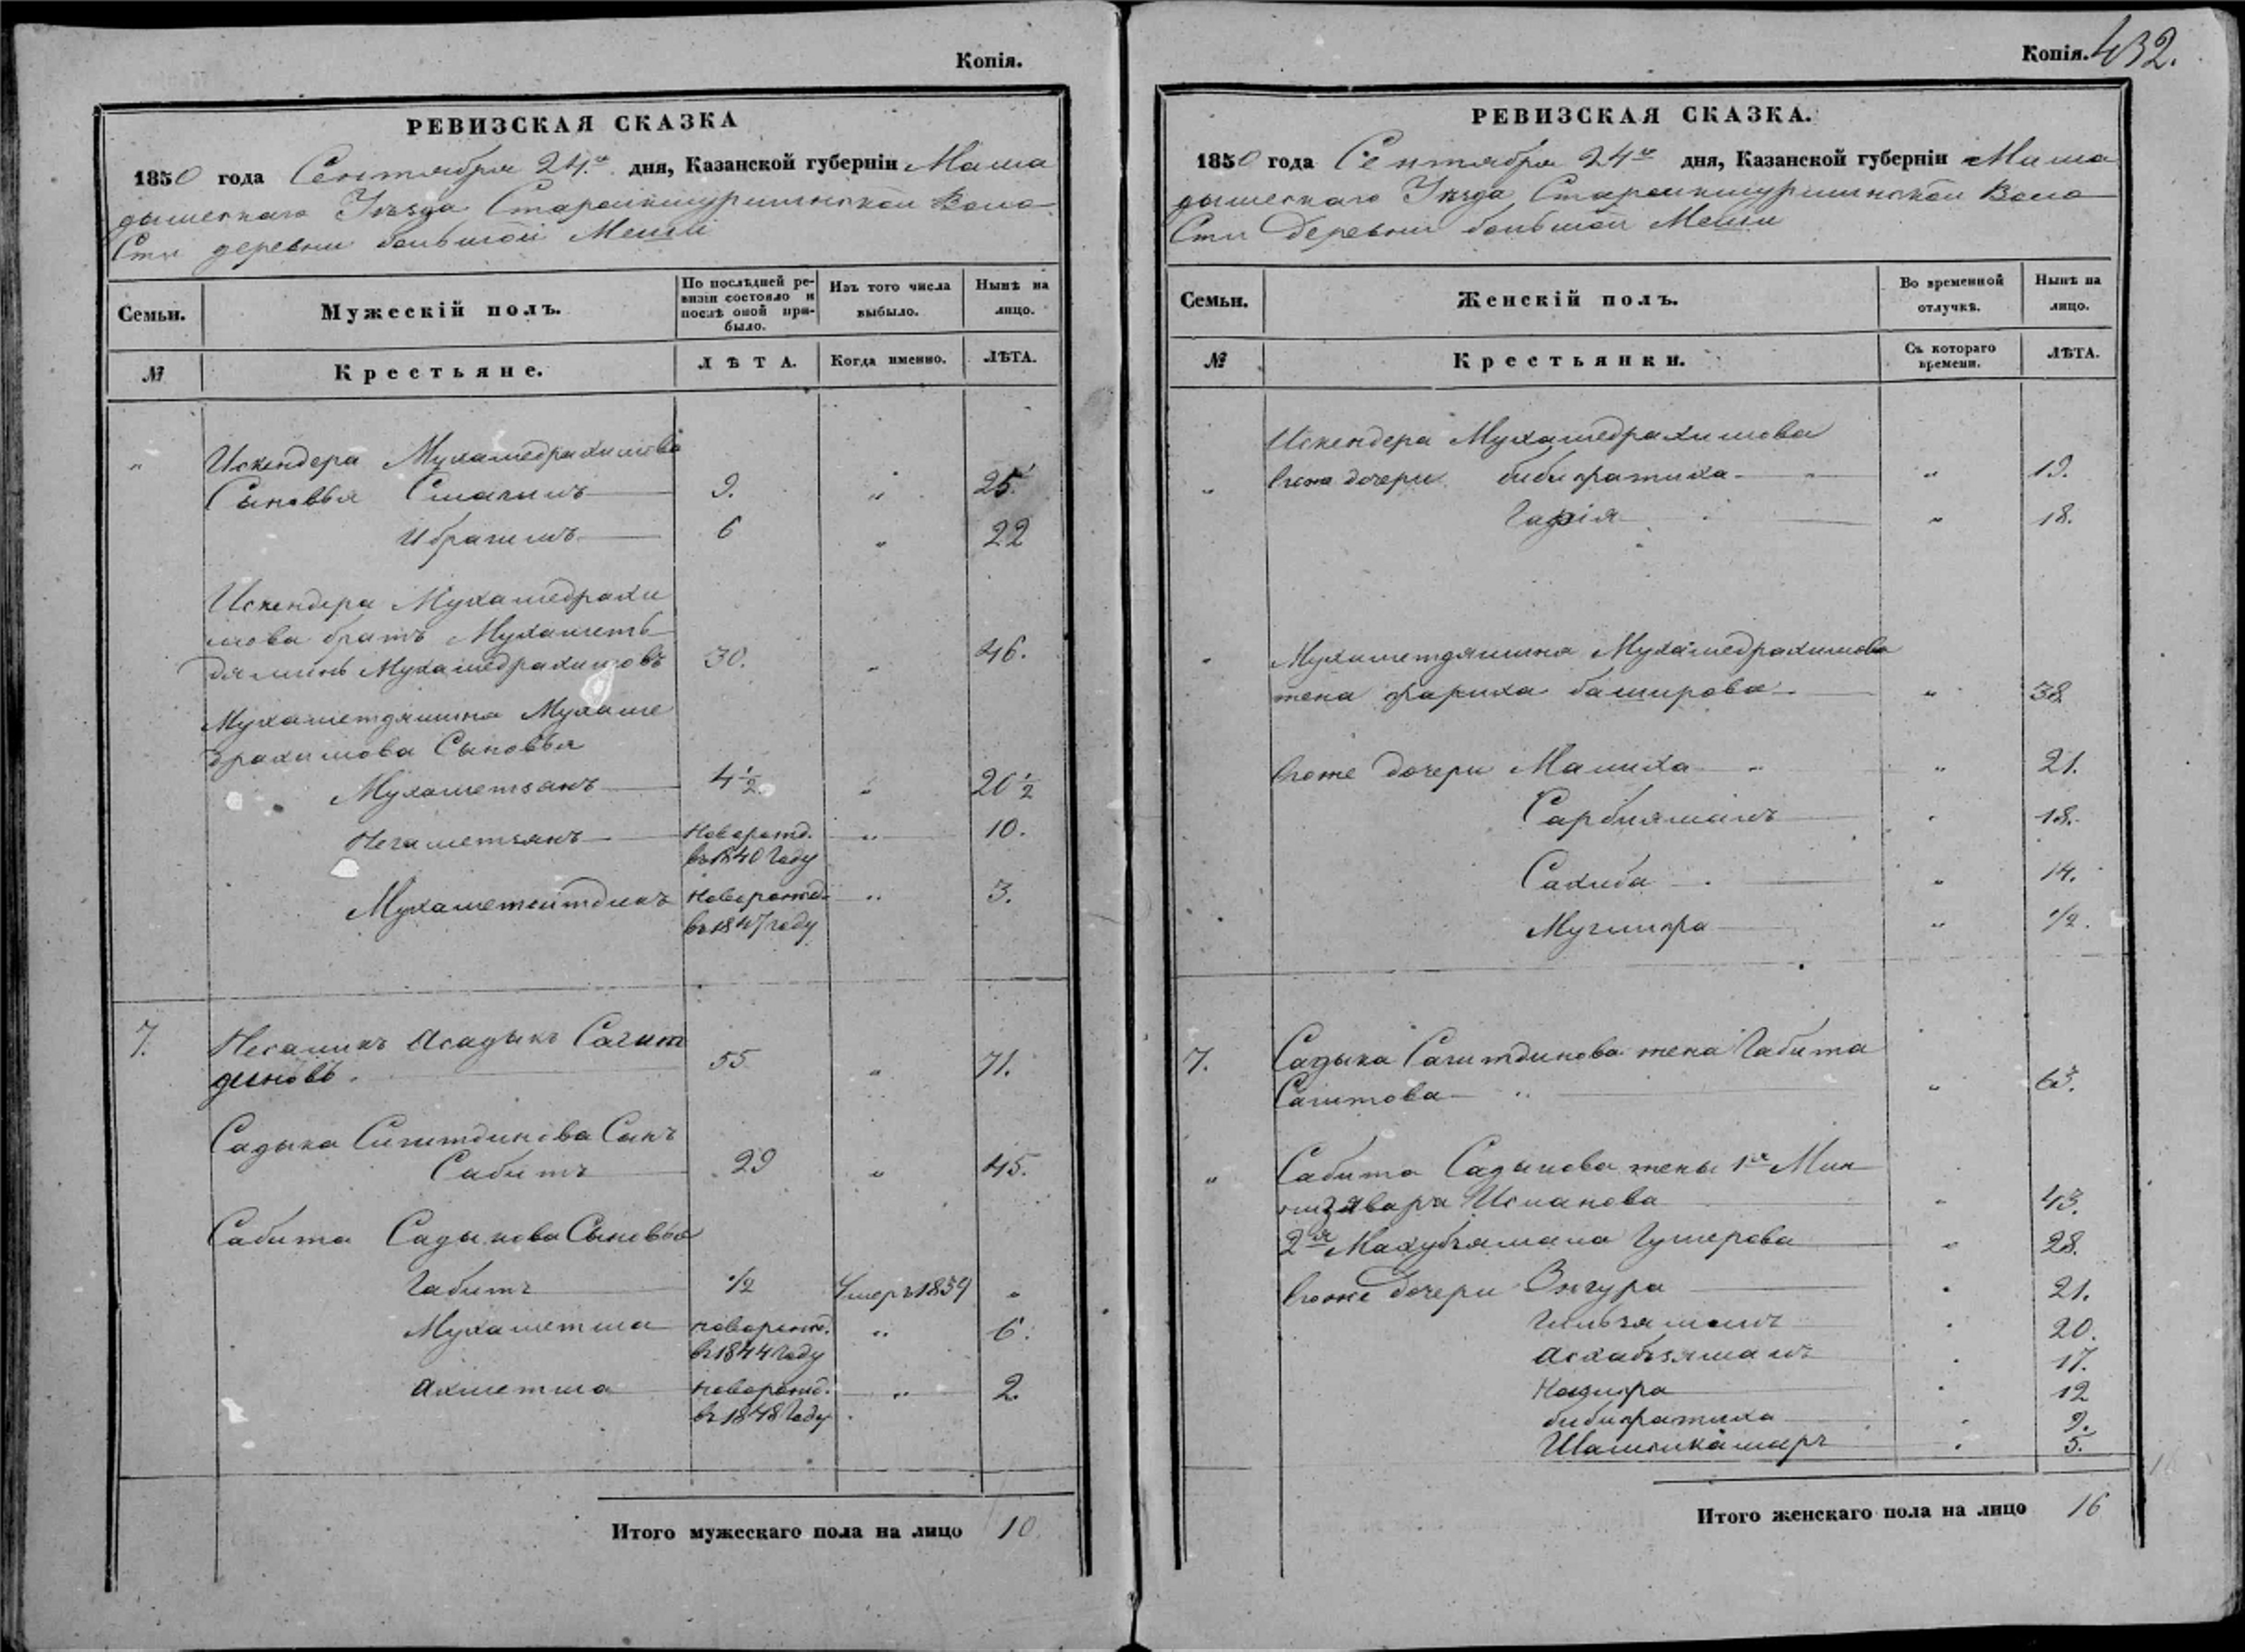 Копія.
РЕВИЗСКАЯ СКАЗКА
1850 года Сентября 24го дня, Казанской губерніи Мама
дышскаго Уезда Староикшурминской Воло
Сти деревни большой Меши
Семьи.
Мужескій полъ.
По послѣдней ре-
визіи состояло и
послѣ оной при-
было.
Изъ того числа
выбыло.
Нынѣ на
лицо.
№
Крестьяне.
ЛѢТА.
Когда именно.
ЛѢТА.
" Искендера Мухамедрахимова
Сыновья Смагилъ 9. " 25.
Ибрагимъ 6 " 22
Искендера Мухамедрахи
мова братъ Мухаметь
дяминъ Мухамедрахимовъ 30. " 46.
Мухаметдямина Мухаме
драхимова Сыновья
Мухаметзанъ 4 1/2 " 20 1/2
Негаметзянъ Новорожд. " 10.
въ 1840 Году
Мухаметситдикъ Новорожд. " 3.
въ 1847 году
7. Несамихъ Асадыкъ Сагит
диновъ. 55 " 71.
Садыка Сигитдинова Сынъ
Сабитъ 29 " 45.
Сабита Садыкова Сыновья
Габитъ 1/2 Умеръ 1839 "
Мухаметша новорожд. " 6.
въ 1844 Году
Ахметша новорожд. " 2.
въ 1848 Году
Итого мужескаго пола на лицо 10.
Копія. 432.
РЕВИЗСКАЯ СКАЗКА.
1850 года Сентября 24го дня, Казанской губерніи Мама
дышскаго Уезда Староикшурминской Воло
Сти Деревни большой Меши
Семьи.
Женскій полъ.
Во временной
отлучкѣ.
Нынѣ на
лицо.
№
Крестьянки.
Съ котораго
времени.
ЛѢТА.
Искендера Мухамедрахимова
" Егоже дочери бибифатиха " 19.
Гафія " 18.
" Мухаметдямина Мухамедрахимова
жена Фариха баширова " 38
Егоже Дочери Малиха " 21.
Сарбиямалъ " 18.
Сахиба " 14.
Муглифа " 1/2.
7. Садыка Сагитдинова жена Габита
Сагитова " 63.
" Сабита Садыкова жены 1я Мин
низявара Исланова " 43.
2я Махубзямала Гумерова " 28.
Егоже Дочери Энгура " 21.
Гильзямалъ " 20.
Асхабзямалъ " 17.
Надифа " 12
бибифатиха " 9.
Шамсикамаръ " 5.
Итого женскаго пола на лицо 16